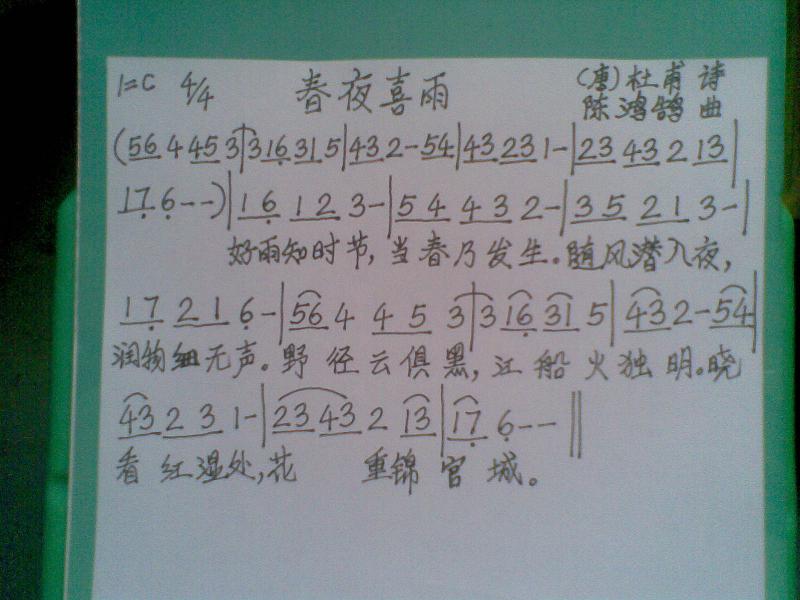 1=C 4/4 春夜喜雨 (唐)杜甫 诗
陈鸿鹄 曲
(56 4 45 3|316 31 5|43 2-54|43 23 1-|23 43 2 13|
17 6--)|1 6 1 2 3-|5 4 4 3 2-|3 5 2 1 3-|
好雨知时节,当春乃发生。随风潜入夜,
17 2 1 6-|56 4 4 5 3|3 16 31 5|43 2-54|
润物细无声。野径云俱黑,江船火独明。晓
43 2 3 1-|23 43 2 13|17 6--||
看红湿处,花重锦官城。